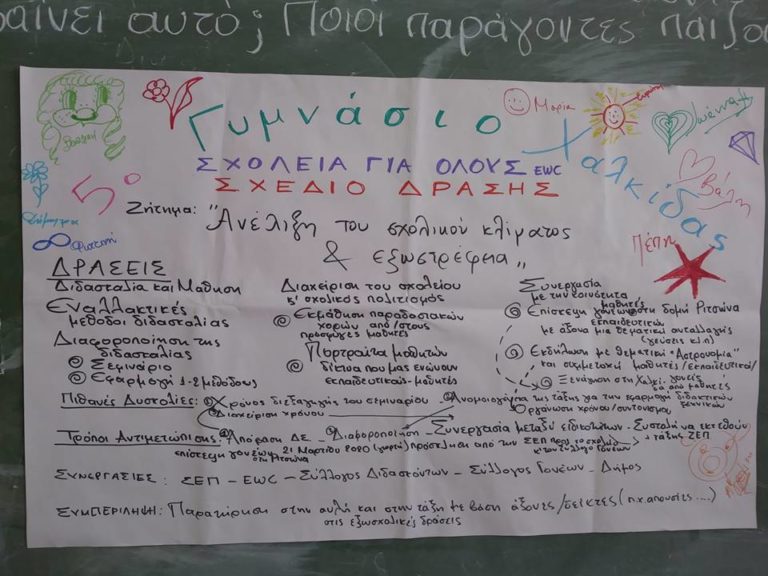 αίνει αυτό; Ποιοί παράγοντες παίζο
5ο Γυμνάσιο Χαλκίδας
Μαρία
Βάλη
Πέπη
ΣΧΟΛΕΙΑ ΓΙΑ ΟΛΟΥΣ EWC
ΣΧΕΔΙΟ ΔΡΑΣΗΣ
Ζήτημα: "Ανέλιξη του σχολικού κλίματος
& εξωστρέφεια"
ΔΡΑΣΕΙΣ
Διδασκαλία και Μάθηση
Εναλλακτικές
μέθοδοι διδασκαλίας
Διαφοροποίηση της
διδασκαλίας
Σεμινάριο
Εφαρμογή 1-2 μεθόδους
Διαχείριση του σχολείου
κ' σχολικός πολιτισμός
Εκμάθηση παραδοσιακών
χορών από/στους
πρόσφυγες μαθητές
Πορτραίτα μαθητών
δίκτυα που μας ενώνουν
εκπαιδευτικοί-μαθητές
Συνεργασία
με την κοινότητα
μαθητές
Επίσκεψη γονέων στη δομή Ριτσώνα
εκπαιδευτικών
με άξονα μια θεματική ανταλλαγής
(γεύσεις κ.λ.π)
Εκδήλωση με θεματική "Αστρονομία"
και συμμετοχή μαθητές/εκπαιδευτικοί/
γονείς
Ξενάγηση στη Χαλκί. από μαθητές
Πιθανές Δυσκολίες: Χρόνος διεξαγωγής του σεμιναρίου. Ανομοιογένεια της τάξης για την εφαρμογή διδακτικών
τεχνικών
Διαχείριση χρόνου Οργάνωση χρόνου/συντονισμού
Τρόποι Αντιμετώπισης: Απόφαση ΔΕ - Διαφοροποίηση - Συνεργασία μεταξύ ειδικοτήτων. Συστολή να εκτεθούν
επίσκεψη γονέων 21 Μαρτίου 2020 πρόσκληση από την ΣΕΠ προς το σχολείο τάξης ΣΕΠ
στη Ριτσώνα κ' τον Σύλλογο Γονέων
ΣΥΝΕΡΓΑΣΙΕΣ: ΣΕΠ - EWC - Σύλλογος Διδασκόντων - Σύλλογος Γονέων - Δήμος
ΣΥΜΠΕΡΙΛΗΨΗ: Παρατήρηση στην αυλή και στην τάξη με βάση άξονες/δείκτες (π.χ. απουσίες ....)
στις εξωσχολικές δράσεις